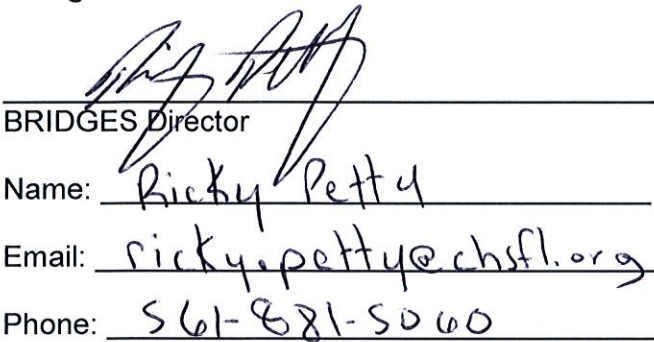 BRIDGES Director
Name: Ricky Petty
Email: ricky.petty@chsfl.org
Phone: 561-881-5060